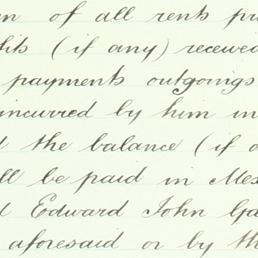 of all rents
(if any) received
payments outgoings
incurred by him in
the balance (if
be paid in
Edward John
aforesaid or by